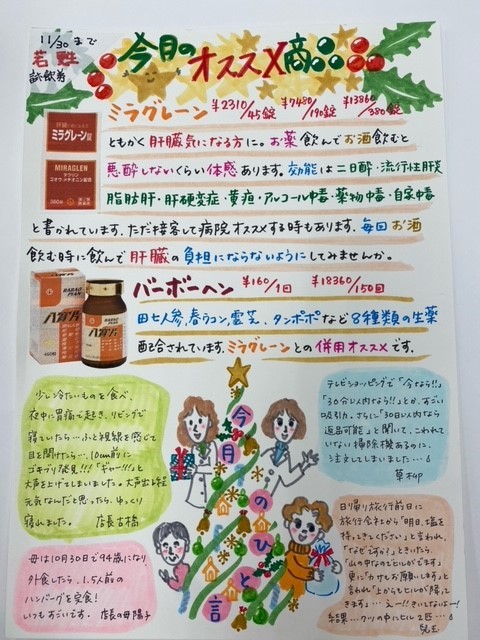 11/30まで
若甦
試飲券
今月のオススメ商品
ミラグレーン ¥2310/45錠 ¥7480/190錠 ¥13860/380錠
ミラグレーン錠
MIRAGLEN
タウリン
ともかく肝臓気になる方に。お薬飲んでお酒飲むと
悪酔しないくらい体感あります。効能は二日酔・流行性肝炎
脂肪肝・肝硬変症・黄疸・アルコール中毒・薬物中毒・自家中毒
と書かれています。ただ接客して病院オススメする時もあります。毎回お酒
飲む時に飲んで肝臓の負担にならないようにしてみませんか。
バーボーヘン ¥160/1回 ¥18360/150回
田七人参、春ウコン、霊芝、タンポポなど8種類の生薬
配合されています。ミラグレーンとの併用オススメです。
少し冷たいものを食べ、
夜中に胃痛で起き、リビングで
寝ていたら…ふと視線を感じて
目を開けたら…10cm前に
ゴキブリ発見!!!「ギャー!!!」と
大声を上てしまいました。大声出る程
元気なんだと思ったら、ゆっくり
寝れました。 店長古橋
テレビショッピングで「今なら!!」
「30分以内なら!!」とか、すごい
吸引力。さらに「30日以内なら
返品可能」と聞いて、こわれて
いない掃除機あるのに、
注文してしまいました…
草柳
今月のひと言
母は10月30日で94歳になり
外食したら、1.5人前の
ハンバーグを完食!
いつもすごいです。 店長の母陽子
日帰り旅行前日に
旅行会社から「明日、塩を
持ってきてください」と言われ、
「なぜですか?」ときいたら、
「山の中なのでヒルがでます。」
更に「カサもお願いします」と
言われ「上からもヒルが降って
きます」… えー!!きいてなーい!
結果…クツの中にヒル2匹…
児玉